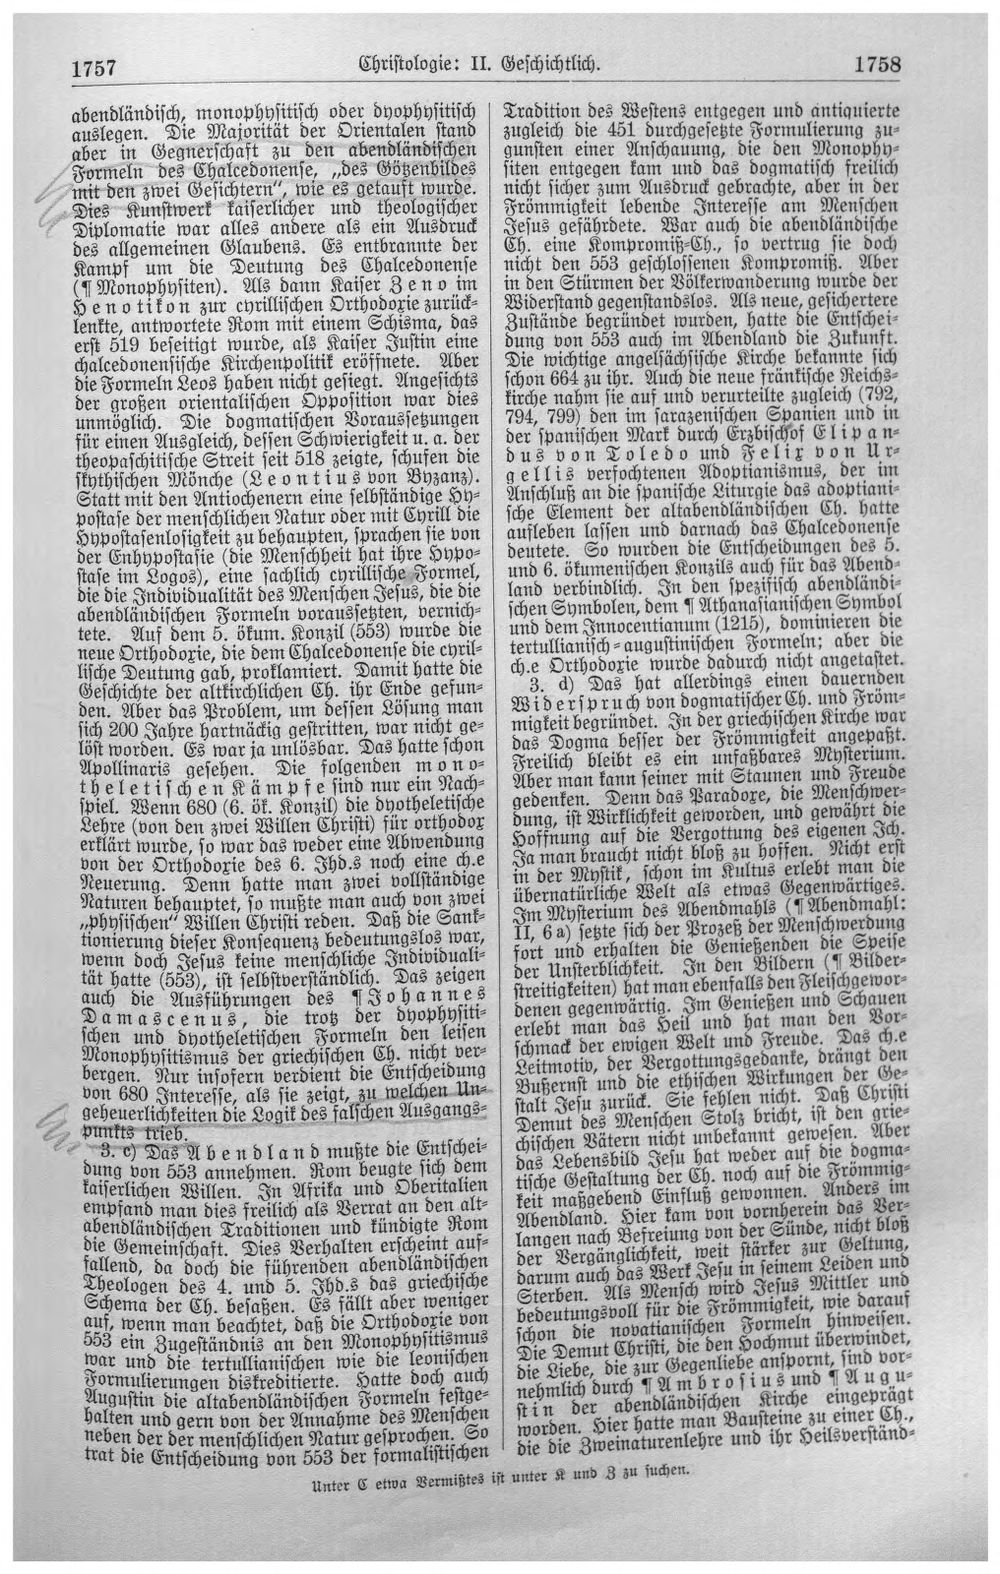 1757
Christologie: II. Geschichtlich.
1758
abendländisch, monophysitisch oder dyophysitisch
auslegen. Die Majorität der Orientalen stand
aber in Gegnerschaft zu den abendländischen
Formeln des Chalcedonense, „des Götzenbildes
mit den zwei Gesichtern“, wie es getauft wurde.
Dies Kunstwerk kaiserlicher und theologischer
Diplomatie war alles andere als ein Ausdruck
des allgemeinen Glaubens. Es entbrannte der
Kampf um die Deutung des Chalcedonense
(¶ Monophysiten). Als dann Kaiser Zeno im
Henotikon zur cyrillischen Orthodoxie zurück-
lenkte, antwortete Rom mit einem Schisma, das
erst 519 beseitigt wurde, als Kaiser Justin eine
chalcedonensische Kirchenpolitik eröffnete. Aber
die Formeln Leos haben nicht gesiegt. Angesichts
der großen orientalischen Opposition war dies
unmöglich. Die dogmatischen Voraussetzungen
für einen Ausgleich, dessen Schwierigkeit u. a. der
theopaschitische Streit seit 518 zeigte, schufen die
skythischen Mönche (Leontius von Byzanz).
Statt mit den Antiochenern eine selbständige Hy-
postase der menschlichen Natur oder mit Cyrill die
Hypostasenlosigkeit zu behaupten, sprachen sie von
der Enhypostasie (die Menschheit hat ihre Hypo-
stase im Logos), eine sachlich cyrillische Formel,
die die Individualität des Menschen Jesus, die die
abendländischen Formeln voraussetzten, vernich-
tete. Auf dem 5. ökum. Konzil (553) wurde die
neue Orthodoxie, die dem Chalcedonense die cyril-
lische Deutung gab, proklamiert. Damit hatte die
Geschichte der altkirchlichen Ch. ihr Ende gefun-
den. Aber das Problem, um dessen Lösung man
sich 200 Jahre hartnäckig gestritten, war nicht ge-
löst worden. Es war ja unlösbar. Das hatte schon
Apollinaris gesehen. Die folgenden mono-
theletischen Kämpfe sind nur ein Nach-
spiel. Wenn 680 (6. ök. Konzil) die dyotheletische
Lehre (von den zwei Willen Christi) für orthodox
erklärt wurde, so war das weder eine Abwendung
von der Orthodoxie des 6. Jhd.s noch eine ch.e
Neuerung. Denn hatte man zwei vollständige
Naturen behauptet, so mußte man auch von zwei
„physischen“ Willen Christi reden. Daß die Sank-
tionierung dieser Konsequenz bedeutungslos war,
wenn doch Jesus keine menschliche Individuali-
tät hatte (553), ist selbstverständlich. Das zeigen
auch die Ausführungen des ¶ Johannes
Damascenus, die trotz der dyophysiti-
schen und dyotheletischen Formeln den leisen
Monophysitismus der griechischen Ch. nicht ver-
bergen. Nur insofern verdient die Entscheidung
von 680 Interesse, als sie zeigt, zu welchen Un-
geheuerlichkeiten die Logik des falschen Ausgangs-
punkts trieb.
3. c) Das Abendland mußte die Entschei-
dung von 553 annehmen. Rom beugte sich dem
kaiserlichen Willen. In Afrika und Oberitalien
empfand man dies freilich als Verrat an den alt-
abendländischen Traditionen und kündigte Rom
die Gemeinschaft. Dies Verhalten erscheint auf-
fallend, da doch die führenden abendländischen
Theologen des 4. und 5. Jhd.s das griechische
Schema der Ch. besaßen. Es fällt aber weniger
auf, wenn man beachtet, daß die Orthodoxie von
553 ein Zugeständnis an den Monophysitismus
war und die tertullianischen wie die leonischen
Formulierungen diskreditierte. Hatte doch auch
Augustin die altabendländischen Formeln festge-
halten und gern von der Annahme des Menschen
neben der der menschlichen Natur gesprochen. So
trat die Entscheidung von 553 der formalistischen
Tradition des Westens entgegen und antiquierte
zugleich die 451 durchgesetzte Formulierung zu-
gunsten einer Anschauung, die den Monophy-
siten entgegen kam und das dogmatisch freilich
nicht sicher zum Ausdruck gebrachte, aber in der
Frömmigkeit lebende Interesse am Menschen
Jesus gefährdete. War auch die abendländische
Ch. eine Kompromiß-Ch., so vertrug sie doch
nicht den 553 geschlossenen Kompromiß. Aber
in den Stürmen der Völkerwanderung wurde der
Widerstand gegenstandslos. Als neue, gesichertere
Zustände begründet wurden, hatte die Entschei-
dung von 553 auch im Abendland die Zukunft.
Die wichtige angelsächsische Kirche bekannte sich
schon 664 zu ihr. Auch die neue fränkische Reichs-
kirche nahm sie auf und verurteilte zugleich (792,
794, 799) den im sarazenischen Spanien und in
der spanischen Mark durch Erzbischof Elipan-
dus von Toledo und Felix von Ur-
gellis verfochtenen Adoptianismus, der im
Anschluß an die spanische Liturgie das adoptiani-
sche Element der altabendländischen Ch. hatte
aufleben lassen und darnach das Chalcedonense
deutete. So wurden die Entscheidungen des 5.
und 6. ökumenischen Konzils auch für das Abend-
land verbindlich. In den spezifisch abendländi-
schen Symbolen, dem ¶ Athanasianischen Symbol
und dem Innocentianum (1215), dominieren die
tertullianisch-augustinischen Formeln; aber die
ch.e Orthodoxie wurde dadurch nicht angetastet.
3. d) Das hat allerdings einen dauernden
Widerspruch von dogmatischer Ch. und Fröm-
migkeit begründet. In der griechischen Kirche war
das Dogma besser der Frömmigkeit angepaßt.
Freilich bleibt es ein unfaßbares Mysterium.
Aber man kann seiner mit Staunen und Freude
gedenken. Denn das Paradoxe, die Menschwer-
dung, ist Wirklichkeit geworden, und gewährt die
Hoffnung auf die Vergottung des eigenen Ich.
Ja man braucht nicht bloß zu hoffen. Nicht erst
in der Mystik, schon im Kultus erlebt man die
übernatürliche Welt als etwas Gegenwärtiges.
Im Mysterium des Abendmahls (¶ Abendmahl:
II, 6 a) setzte sich der Prozeß der Menschwerdung
fort und erhalten die Genießenden die Speise
der Unsterblichkeit. In den Bildern (¶ Bilder-
streitigkeiten) hat man ebenfalls den Fleischgewor-
denen gegenwärtig. Im Genießen und Schauen
erlebt man das Heil und hat man den Vor-
schmack der ewigen Welt und Freude. Das ch.e
Leitmotiv, der Vergottungsgedanke, drängt den
Bußernst und die ethischen Wirkungen der Ge-
stalt Jesu zurück. Sie fehlen nicht. Daß Christi
Demut des Menschen Stolz bricht, ist den grie-
chischen Vätern nicht unbekannt gewesen. Aber
das Lebensbild Jesu hat weder auf die dogma-
tische Gestaltung der Ch. noch auf die Frömmig-
keit maßgebend Einfluß gewonnen. Anders im
Abendland. Hier kam von vornherein das Ver-
langen nach Befreiung von der Sünde, nicht bloß
der Vergänglichkeit, weit stärker zur Geltung,
darum auch das Werk Jesu in seinem Leiden und
Sterben. Als Mensch wird Jesus Mittler und
bedeutungsvoll für die Frömmigkeit, wie darauf
schon die novatianischen Formeln hinweisen.
Die Demut Christi, die den Hochmut überwindet,
die Liebe, die zur Gegenliebe anspornt, sind vor-
nehmlich durch ¶ Ambrosius und ¶ Augu-
stin der abendländischen Kirche eingeprägt
worden. Hier hatte man Bausteine zu einer Ch.,
die die Zweinaturenlehre und ihr Heilsverständ-
Unter C etwa Vermißtes ist unter K und Z zu suchen.